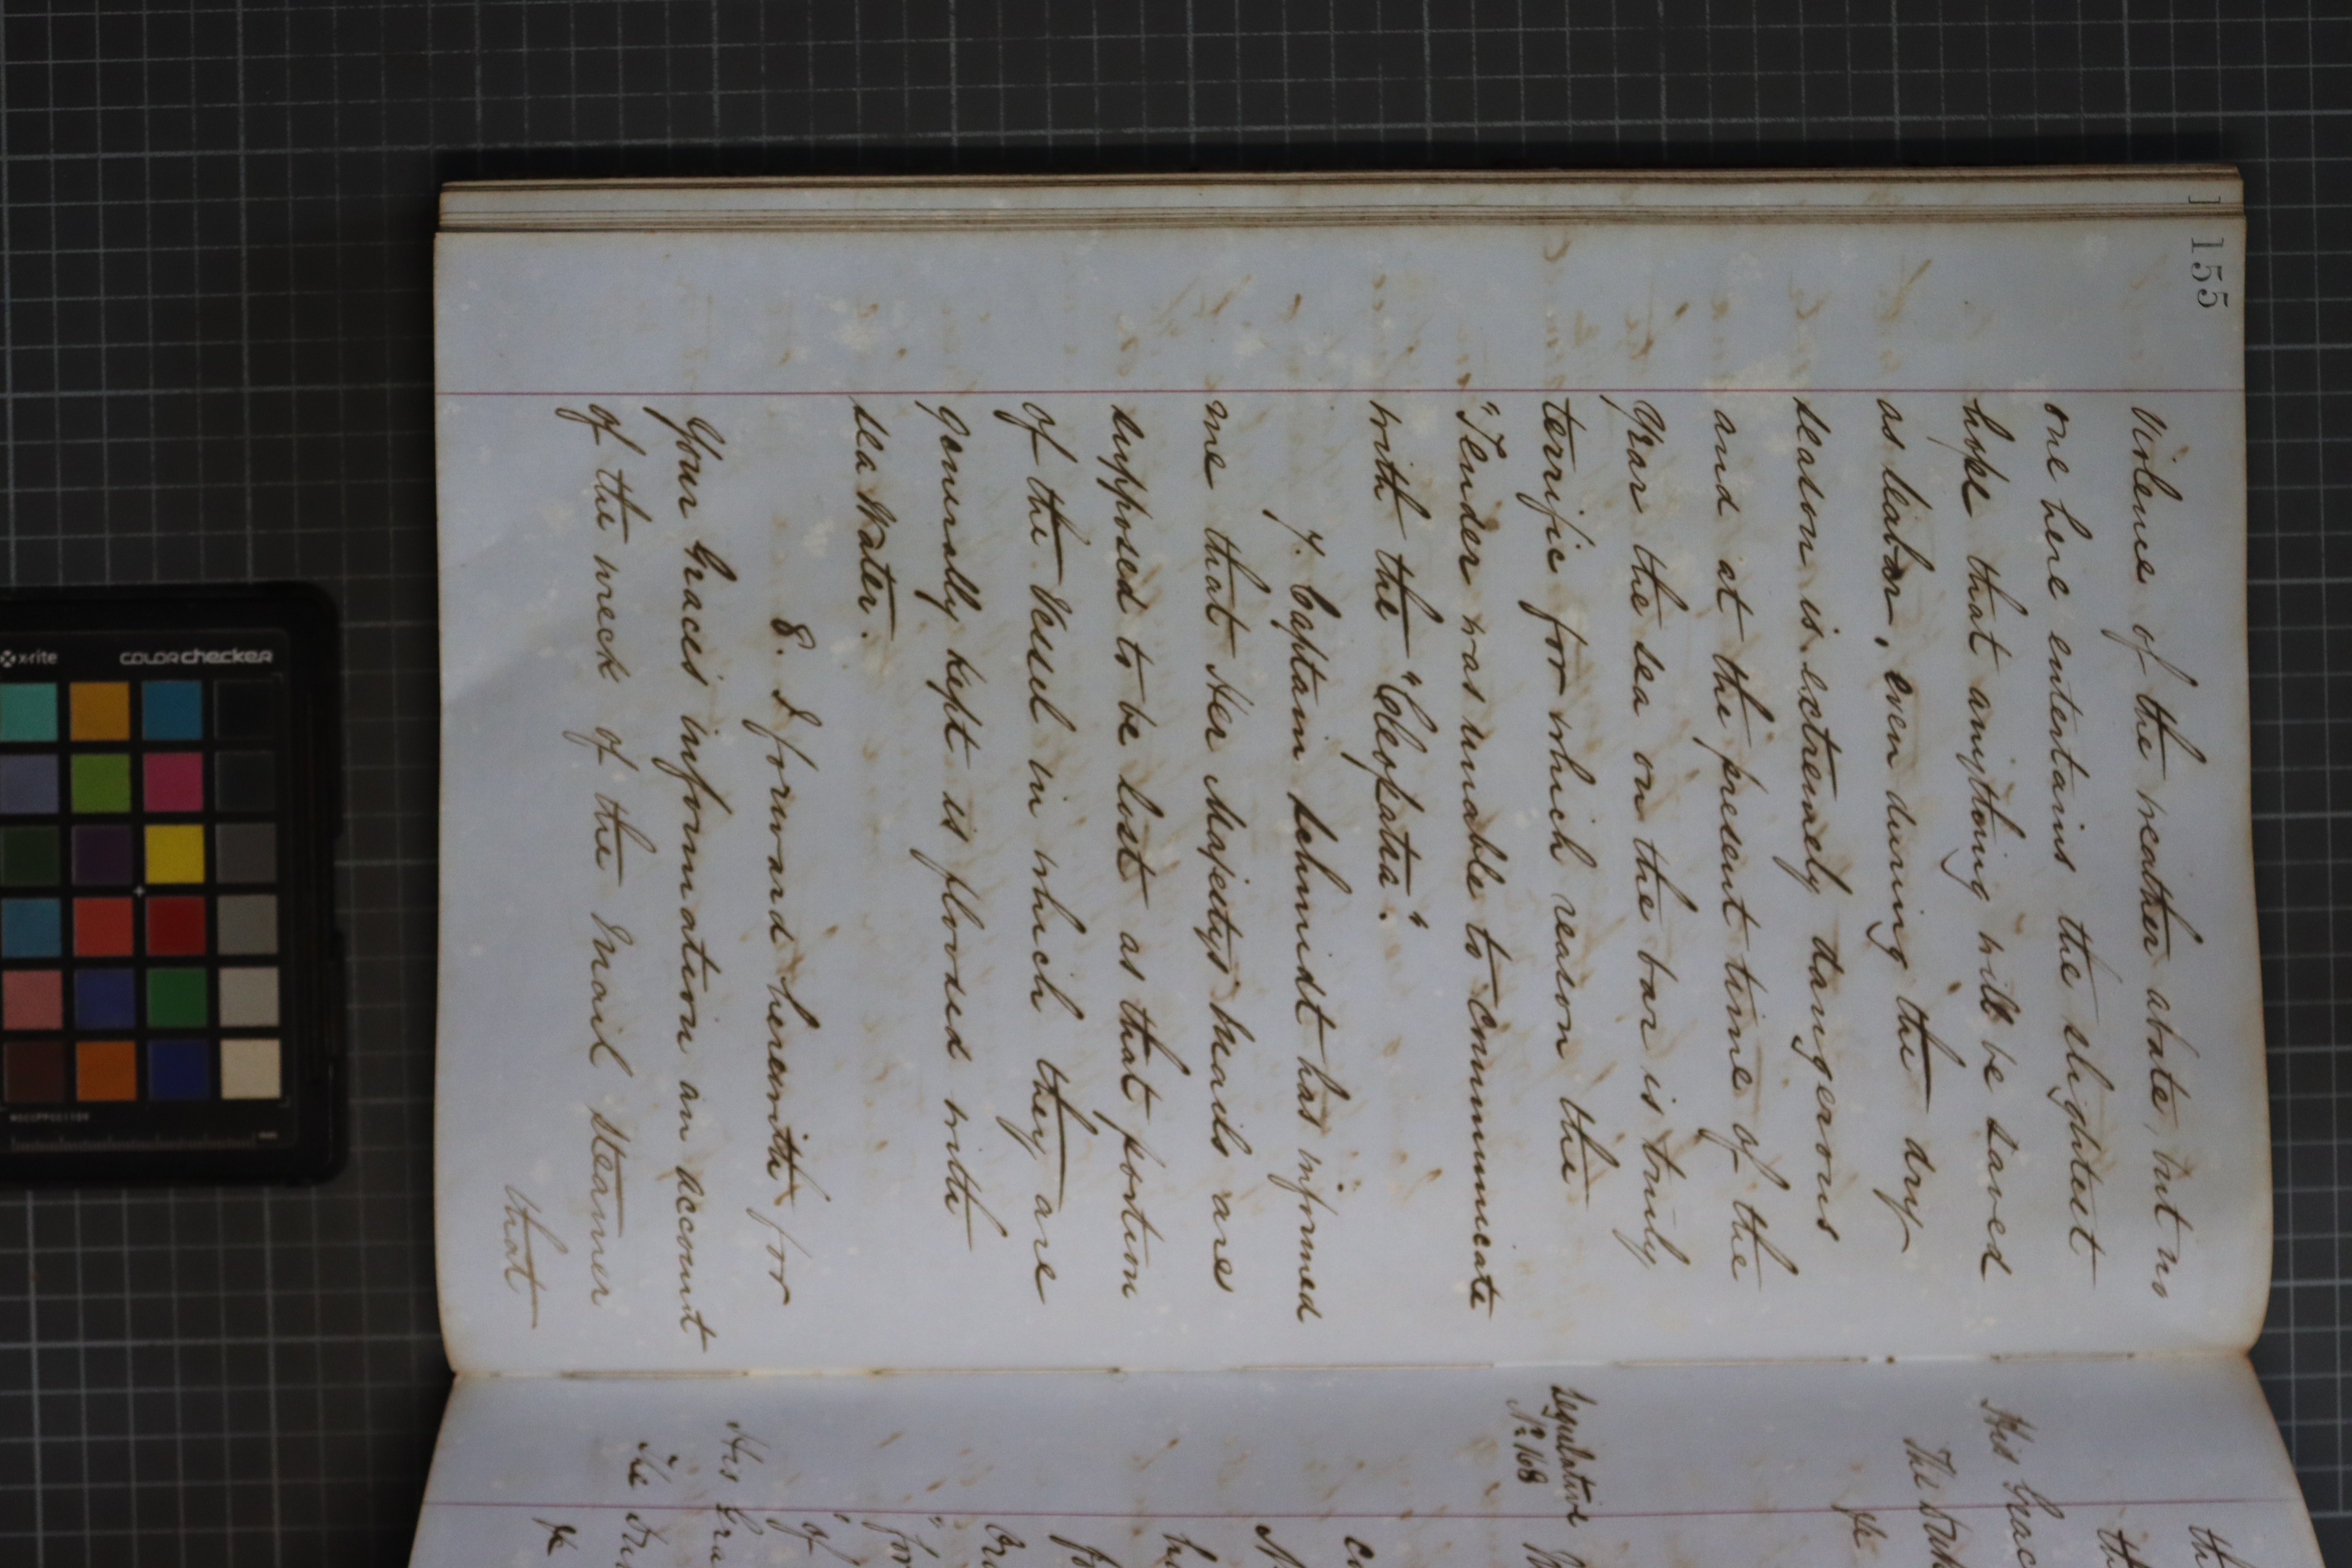 155
violence of the weather abate, but no
one here entertains the slightest
hope that anything will be saved
as leabar, even during the dry
season is extremely dangerous
and at the present time of the
year the sea on the bar is truly
terrific for which reason the
"Tender was unable to communicate
with the "Cleopatra".
7. Captain Schmidt has informed
me that Her Majesty's Mails are
supposed to be lost as that portion
of the Vessel in which they are
generally kept is flooded with
sea Water.
8. I forward herewith for
Your Graces information an account
of the wreck of the Mail Steamer
that
His Grac
The Duk
Legislative
No. 168
His Gra
The Du
of
x-rite
colorchecker